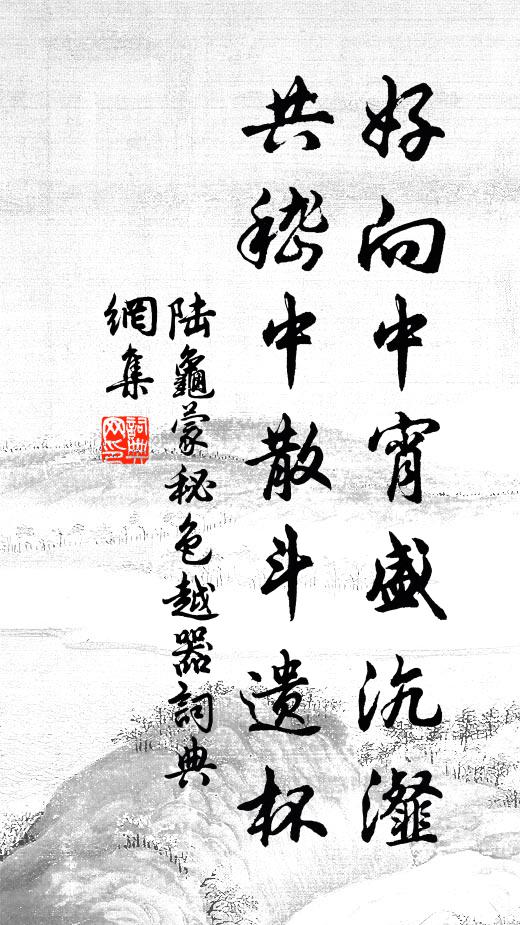 好向中宵盛沆瀣
共嵇中散斗遺杯
陆龜蒙秘色越器詞典
網集
詞典